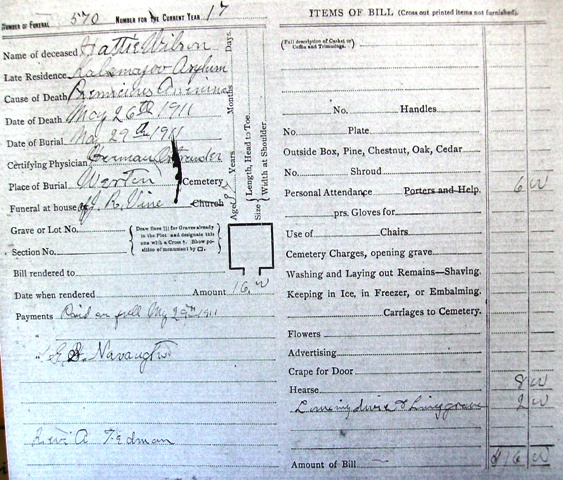 NUMBER OF FUNERAL 570 NUMBER FOR THE CURRENT YEAR 17
Name of deceased Hattie Wilson
Late Residence Kalamazoo Asylum
Cause of Death Pernicious Anemia
Date of Death May 26th 1911
Date of Burial May 29th 1911
Certifying Physician Herman Ostrander
Place of Burial Cemetery
Funeral at house of J. R. Vine Church
Grave or Lot No.
Section No.
Draw lines for Graves already in the Plot and designate this one with a Cross †. Show position of monument by □.
Bill rendered to
Date when rendered Amount 16.00
Payments Paid in full May 29th 1911
" G. B. Navaugh
Levi A
Age Years Months Days.
Size Length, Head to Toe
Width at Shoulder.
ITEMS OF BILL (Cross out printed items not furnished).
(Full description of Casket or Coffin and Trimmings.
No. Handles
No. Plate
Outside Box, Pine, Chestnut, Oak, Cedar
No. Shroud
Personal Attendance Porters and Help. 6 00
prs. Gloves for
Use of Chairs
Cemetery Charges, opening grave
Washing and Laying out Remains—Shaving.
Keeping in Ice, in Freezer, or Embalming.
Carriages to Cemetery.
Flowers
Advertising
Crape for Door
Hearse 8 00
Lowering device & Lining grave 2 00
Amount of Bill $16 00